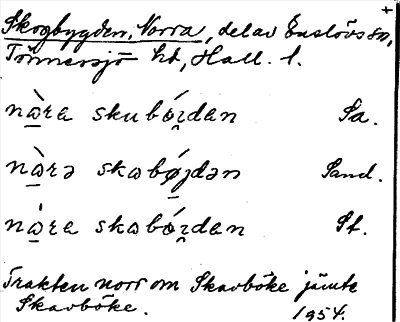 Skogbygden, Norra, del av Enslövs sn,
Tönnersjö hd, Hall. l.
nὼ̱ra skubó̱ɪ̯dan Sa.
nὼ̱rə skabǿ̱ɪdən Sand.
nὼ̱ra skabó̱ɪ̯dan St.
Trakten norr om Skavböke jämte
Skavböke. 1954.